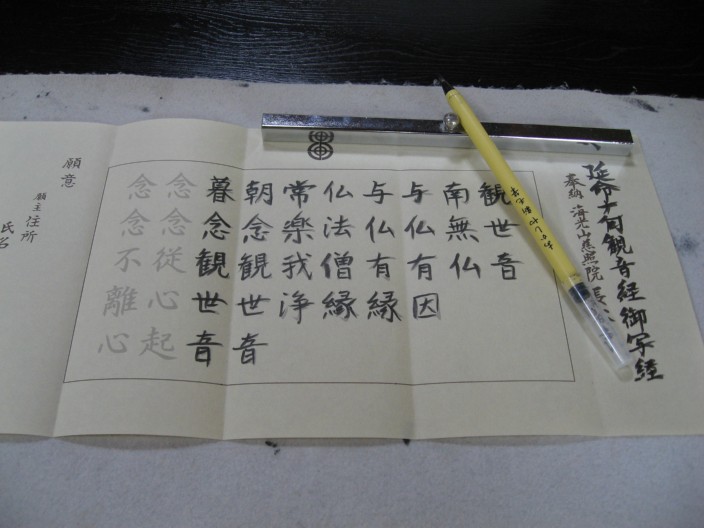 延命十句観音経御写経
奉納 海光山慈照院長
観世音
南無仏
与仏有因
与仏有縁
仏法僧縁
常樂我浄
朝念観世音
暮念観世音
念念従心起
念念不離心
願意
願主 住所
氏名